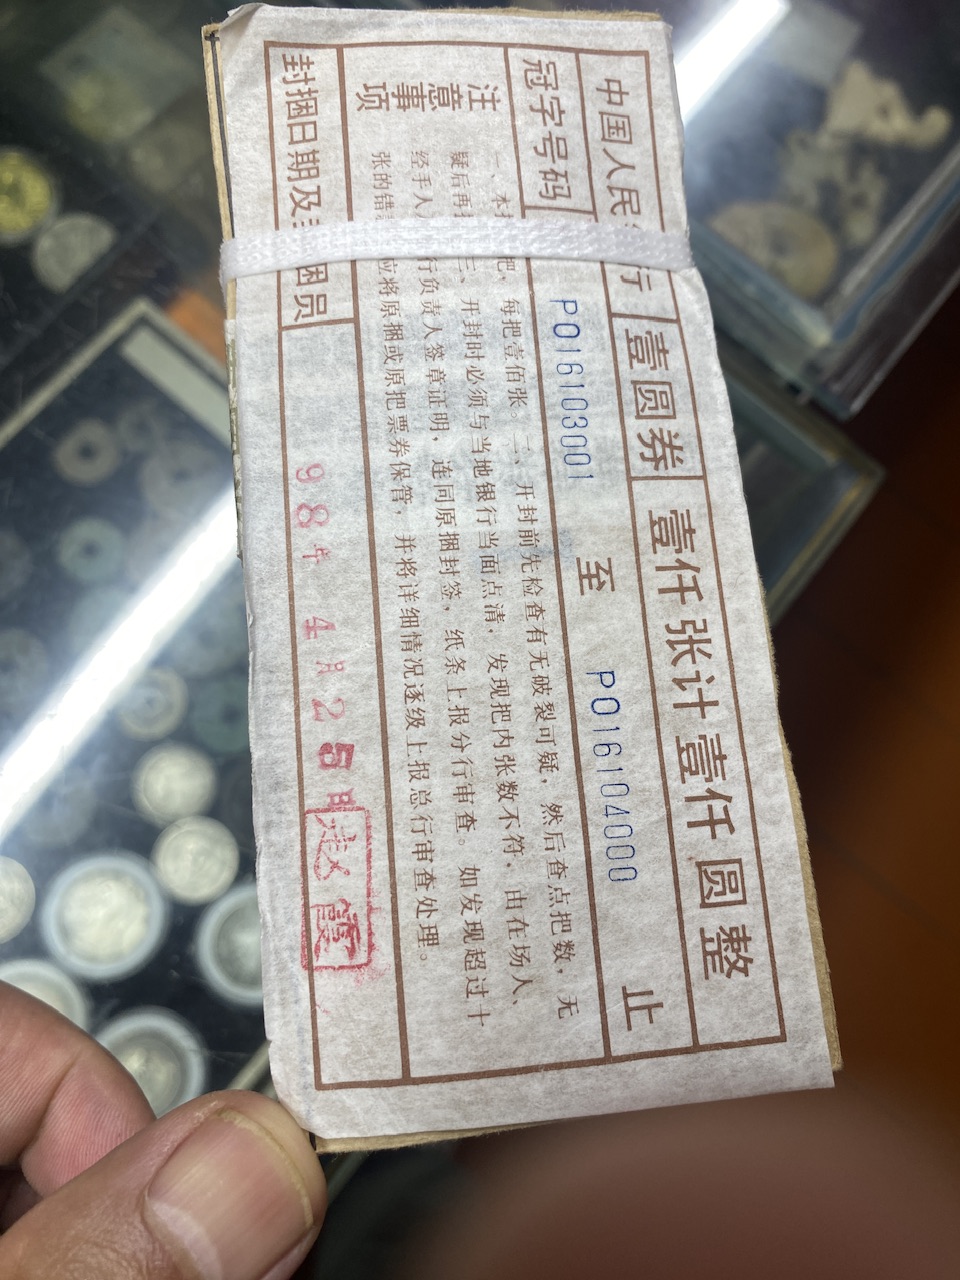 中国人民 行 壹圆券 壹仟张计壹仟圆整
冠字号码 P016103001 至 P016104000 止
注意事项
一、本 把，每把壹佰张。二、开封前先检查有无破裂可疑，然后查点把数，无
疑后再 三、开封时必须与当地银行当面点清，发现把内张数不符，由在场人、
经手人 行负责人签章证明，连同原捆封签，纸条上报分行审查。如发现超过十
张的错 应将原捆或原把票券保管，并将详细情况逐级上报总行审查处理。
封捆日期及 捆员 98年4月25日 赵霞